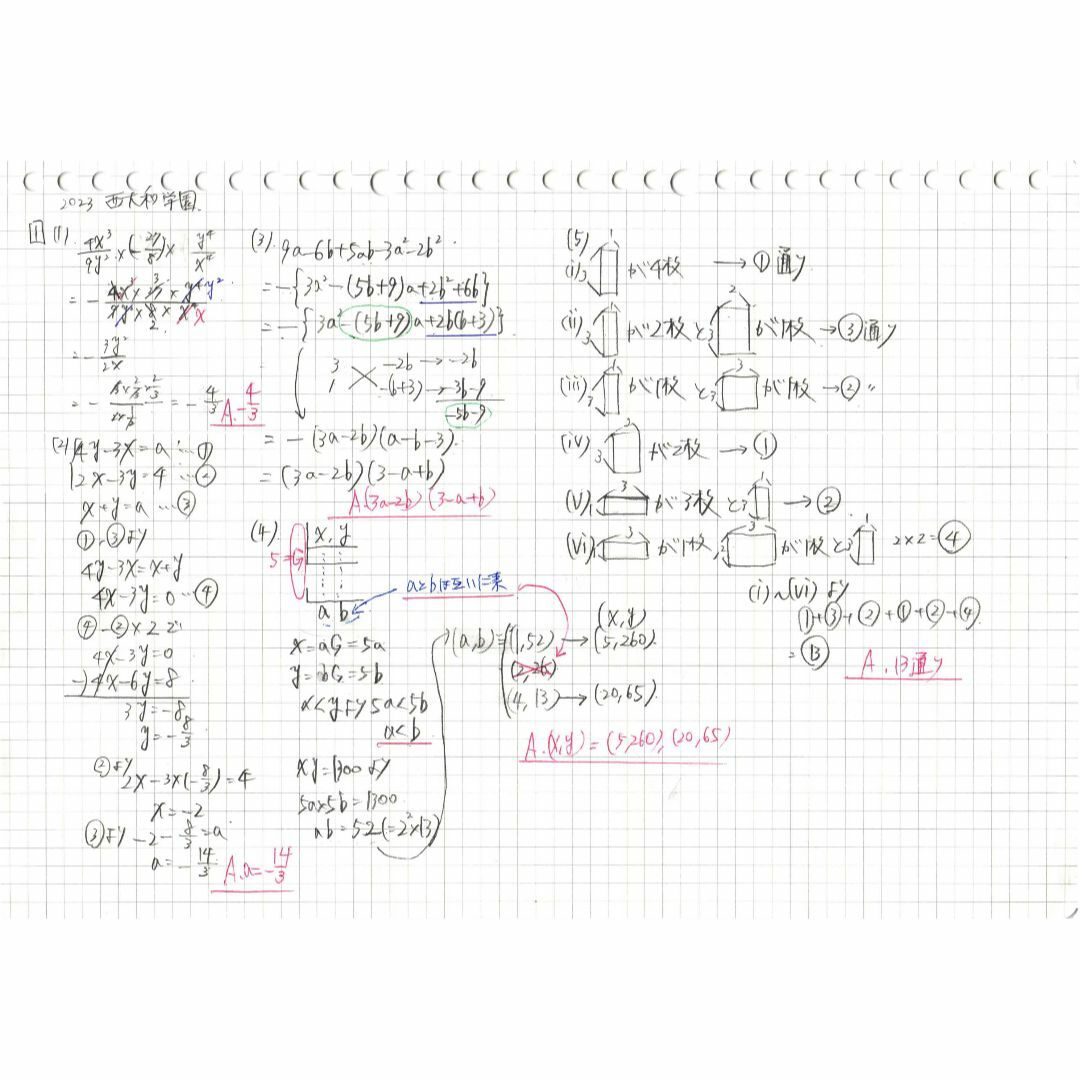 2023 西大和学園.
1 (1). 4x³/9y² × (-27/8) × y⁴/x⁴
= - 4x³ × 27 × y⁴ y² / 9y² × 8 × x⁴ x
3
2
= - 3y²/2x
= - 4/3
A. -4/3
(2) 4y-3x=a …①
2x-3y=4 …②
x+y=a …③
①, ③より
4y-3x=x+y
4x-3y=0 …④
④-②×2で
4x-3y=0
-) 4x-6y=8
3y=-8
y=-8/3
②より
2x-3×(-8/3)=4
x=-2
③より -2-8/3=a
a=-14/3
A. a=-14/3
(3). 9a-6b+5ab-3a²-2b².
=-{3a²-(5b+9)a+2b²+6b}
=-{3a²-(5b+9)a+2b(b+3)}
3 -2b → -2b
1 -(b+3) → -3b-9
-5b-9
=-(3a-2b)(a-b-3).
=(3a-2b)(3-a+b)
A.(3a-2b)(3-a+b)
(4).
x, y
5=G
a b
aとbは互いに素
x=aG=5a
y=bG=5b
x<yより5a<5b
a<b
xy=1300より
5a×5b=1300.
ab=52(=2²×13)
(x,y)
(a,b)=(1,52) → (5,260).
(2,26)
(4,13) → (20,65).
A.(x,y)=(5,260),(20,65)
(5)
(i) 3 1 が4枚 → ①通り
(ii) 3 1 が2枚と3 2 が1枚 → ③通り
(iii) 3 1 が1枚 と3 3 が1枚 → ② 〃
(iv) 3 2 が2枚 → ①
(v) 1 3 が3枚と3 1 → ②
(vi) 1 3 が1枚, 2 3 が1枚と3 1 2×2=④
(i)~(vi)より
①+③+②+①+②+④
=⑬
A. 13通り